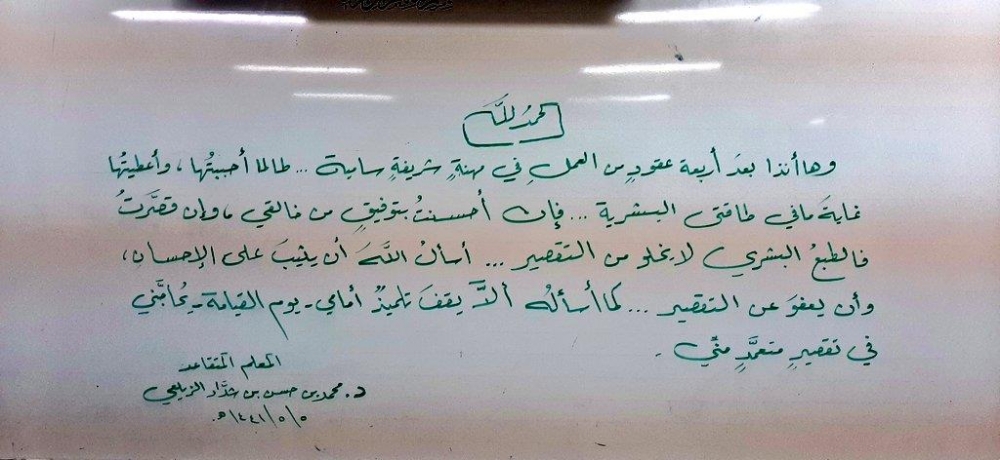 الحمدُ للَّه
وها أنذا بعدَ أربعة عقودٍ من العملِ في مهنةٍ شريفةٍ سامية ... طالما أحببتُها ، وأعطيتُها
غايةَ مافي طاقتي البشرية ... فإن أحسنتُ بتوفيقٍ من خالقي ، وإن قصَّرتُ
فالطبعُ البشري لا يخلو من التقصير ... أسألُ اللَّهَ أن يثيبَ على الإحسان ،
وأن يعفوَ عن التقصير ... كما أسألُه ألاَّ يقفَ تلميذٌ أمامي - يوم القيامة - يُحاجُّني
في تقصيرٍ متعمَّدٍ منّي .
المعلم المتقاعد
د. محمد بن حسن بن شدَّاد الزيلعي
٥/٥/١٤٤١هـ